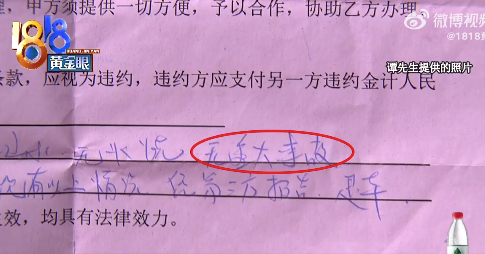 甲方须提供一切方便，予以合作，协助乙方办理
微博视频
@1818
1818
黄金眼
谭先生提供的照片
条款，应视为违约，违约方应支付另一方违约金计人民
水 无火烧 无重大事故
有以上情况 经第三方报告 退车
效，均具有法律效力。